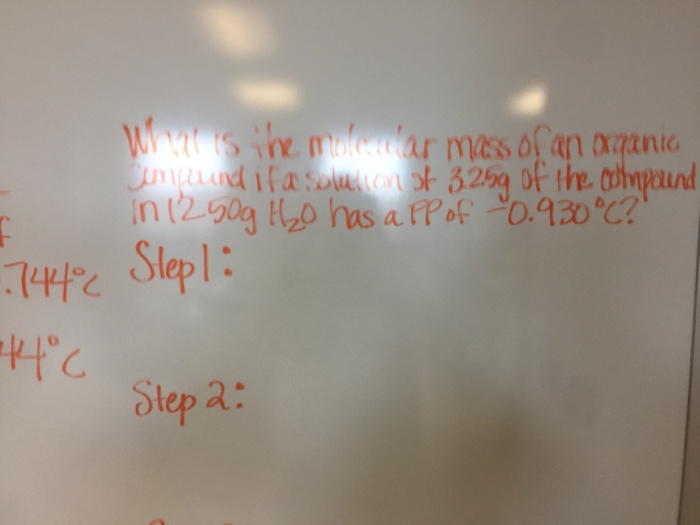 What is the molecular mass of an organic
compound if a solution of 3.25g of the compound
in 12.50g H₂O has a FP of -0.930°C?
.744°C
Step 1:
44°C
Step 2: